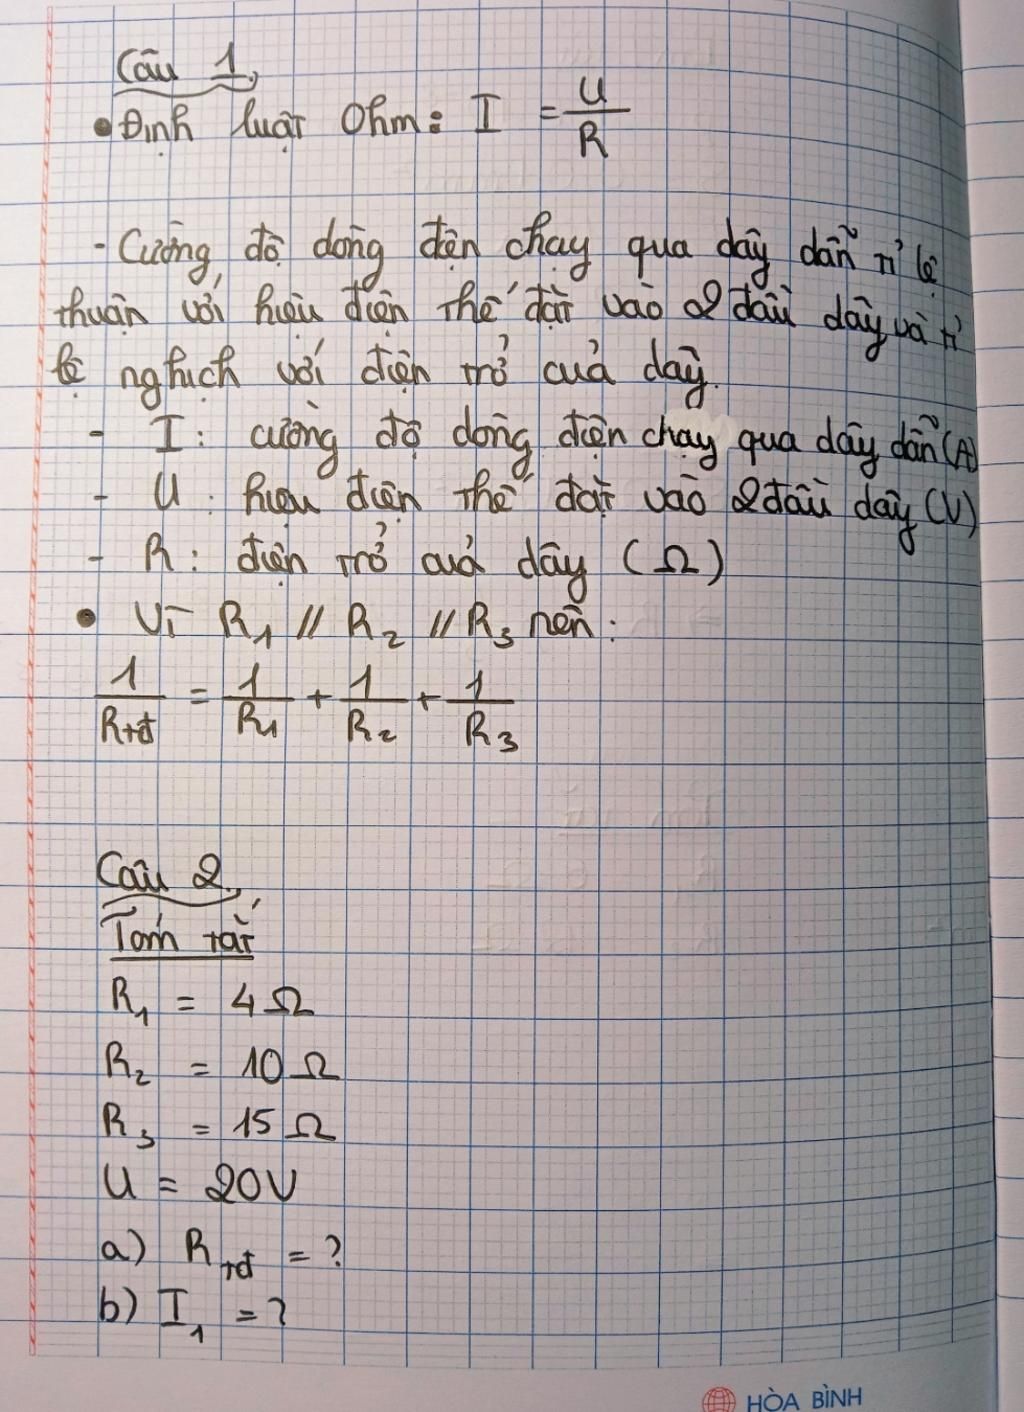 Câu 1,
• Định luật Ohm: I = U/R
- Cường độ dòng điện chạy qua dây dẫn tỉ lệ
thuận với hiệu điện thế đặt vào 2 đầu dây và tỉ
lệ nghịch với điện trở của dây.
- I: cường độ dòng điện chạy qua dây dẫn (A)
- U: hiệu điện thế đặt vào 2 đầu dây (V)
- R: điện trở của dây (Ω)
• Vì R₁ // R₂ // R₃ nên:
1/Rtđ = 1/R₁ + 1/R₂ + 1/R₃
Câu 2,
Tóm tắt
R₁ = 4Ω
R₂ = 10Ω
R₃ = 15Ω
U = 20V
a) Rtđ = ?
b) I₁ = ?
HÒA BÌNH